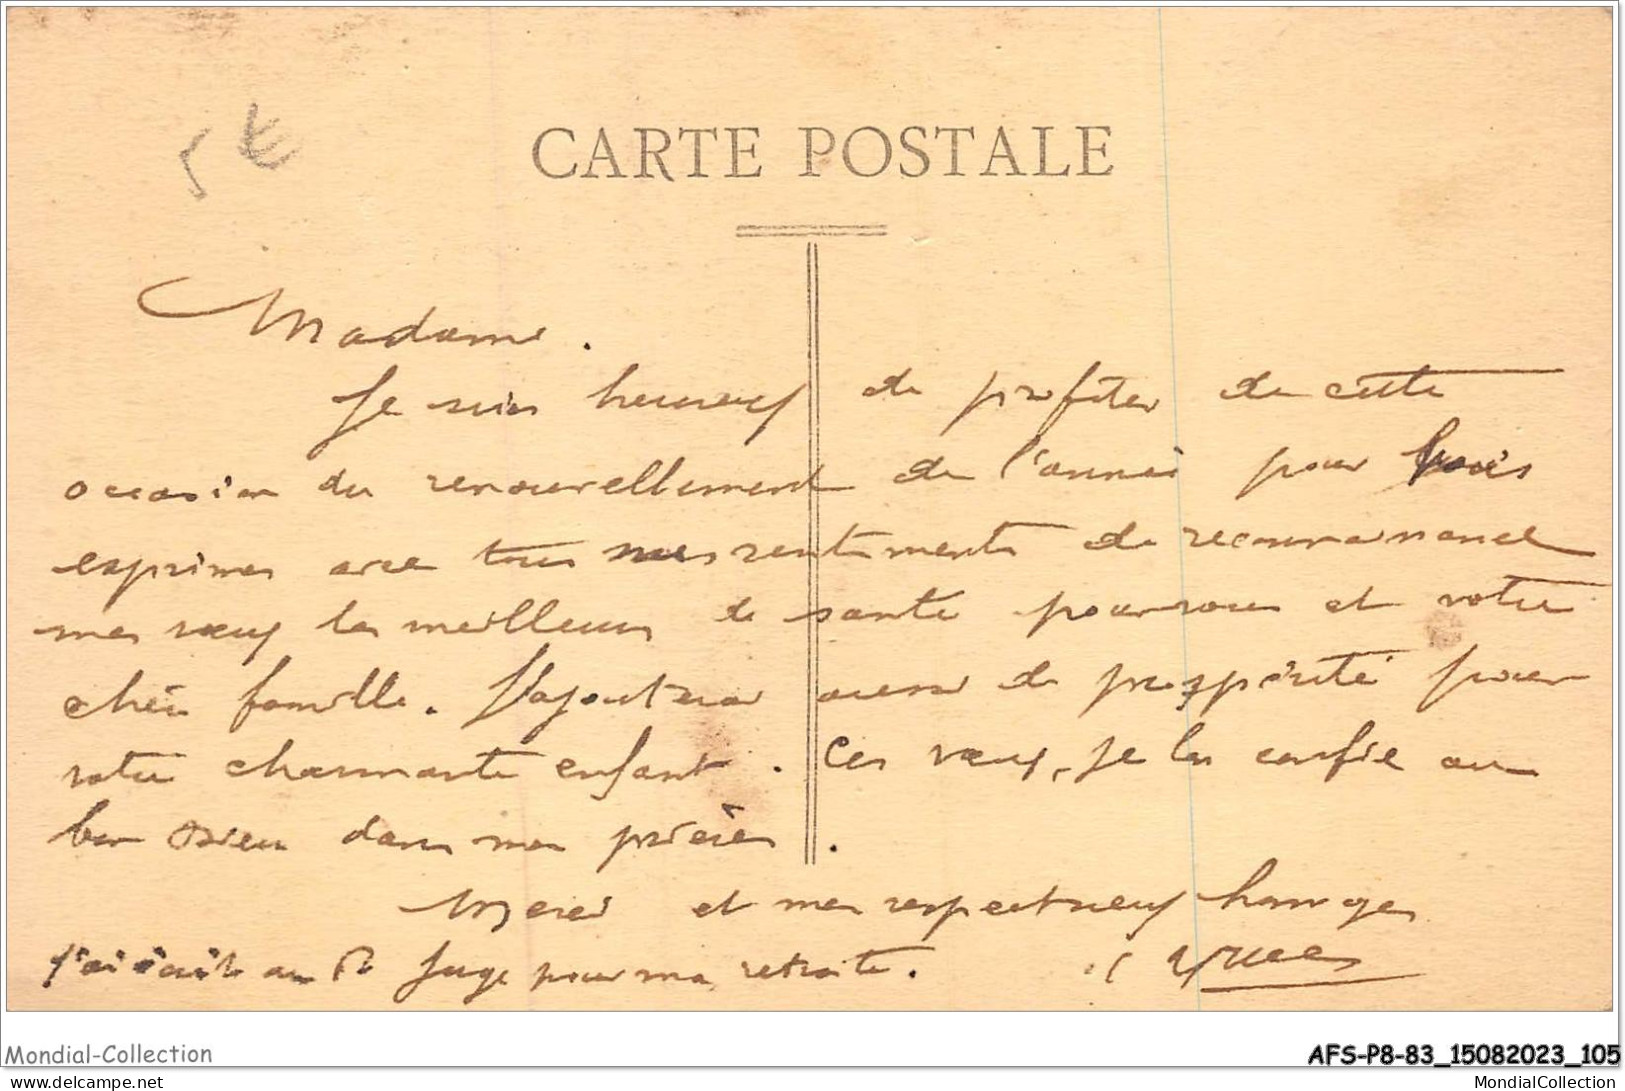 5 €
CARTE POSTALE
Madame.
Je suis heureux de profiter de cette
occasion du renouvellement de l'année pour
exprimer avec tous mes sentiments de reconnaissance
mes vœux les meilleurs de santé pour vous et votre
chère famille. J'ajouterai aussi de prospérité pour
votre charmante enfant. Ces vœux, je les confie au
bon Dieu dans mes prières.
Merci et mes respectueux hommages
j'ai écrit au Juge pour ma retraite.
Mondial-Collection
AFS-P8-83_15082023_105
www.delcampe.net
MondialCollection